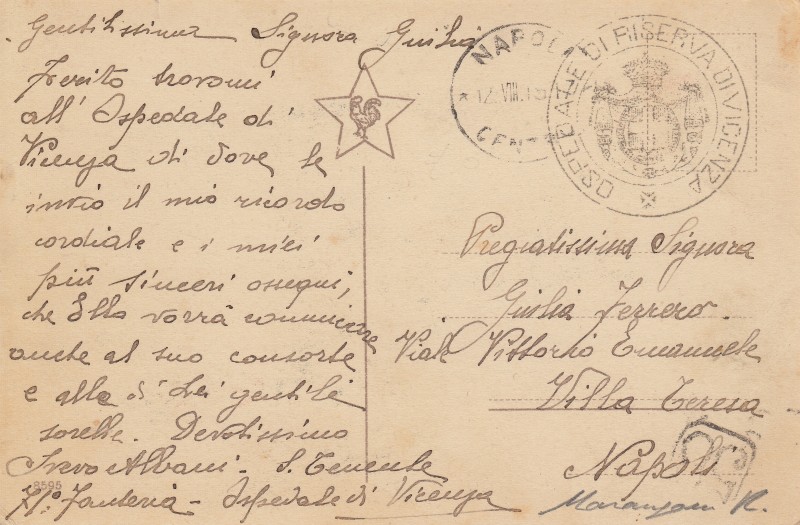 Gentilissima Signora Giulia
Ferito trovomi
all'Ospedale di
Vicenza di dove le
invio il mio ricordo
cordiale e i miei
più sinceri ossequi,
che Ella vorrà comunicare
anche al suo consorte
e alle di Lei gentili
sorelle. Devotissimo
Albani - S. Tenente
71º Fanteria - Ospedale di Vicenza
8595
NAPOLI
12. VIII. 15
CENT
OSPEDALE DI RISERVA DI VICENZA
Pregiatissima Signora
Giulia Ferrero.
Viale Vittorio Emanuele
Villa Teresa
Napoli
R.